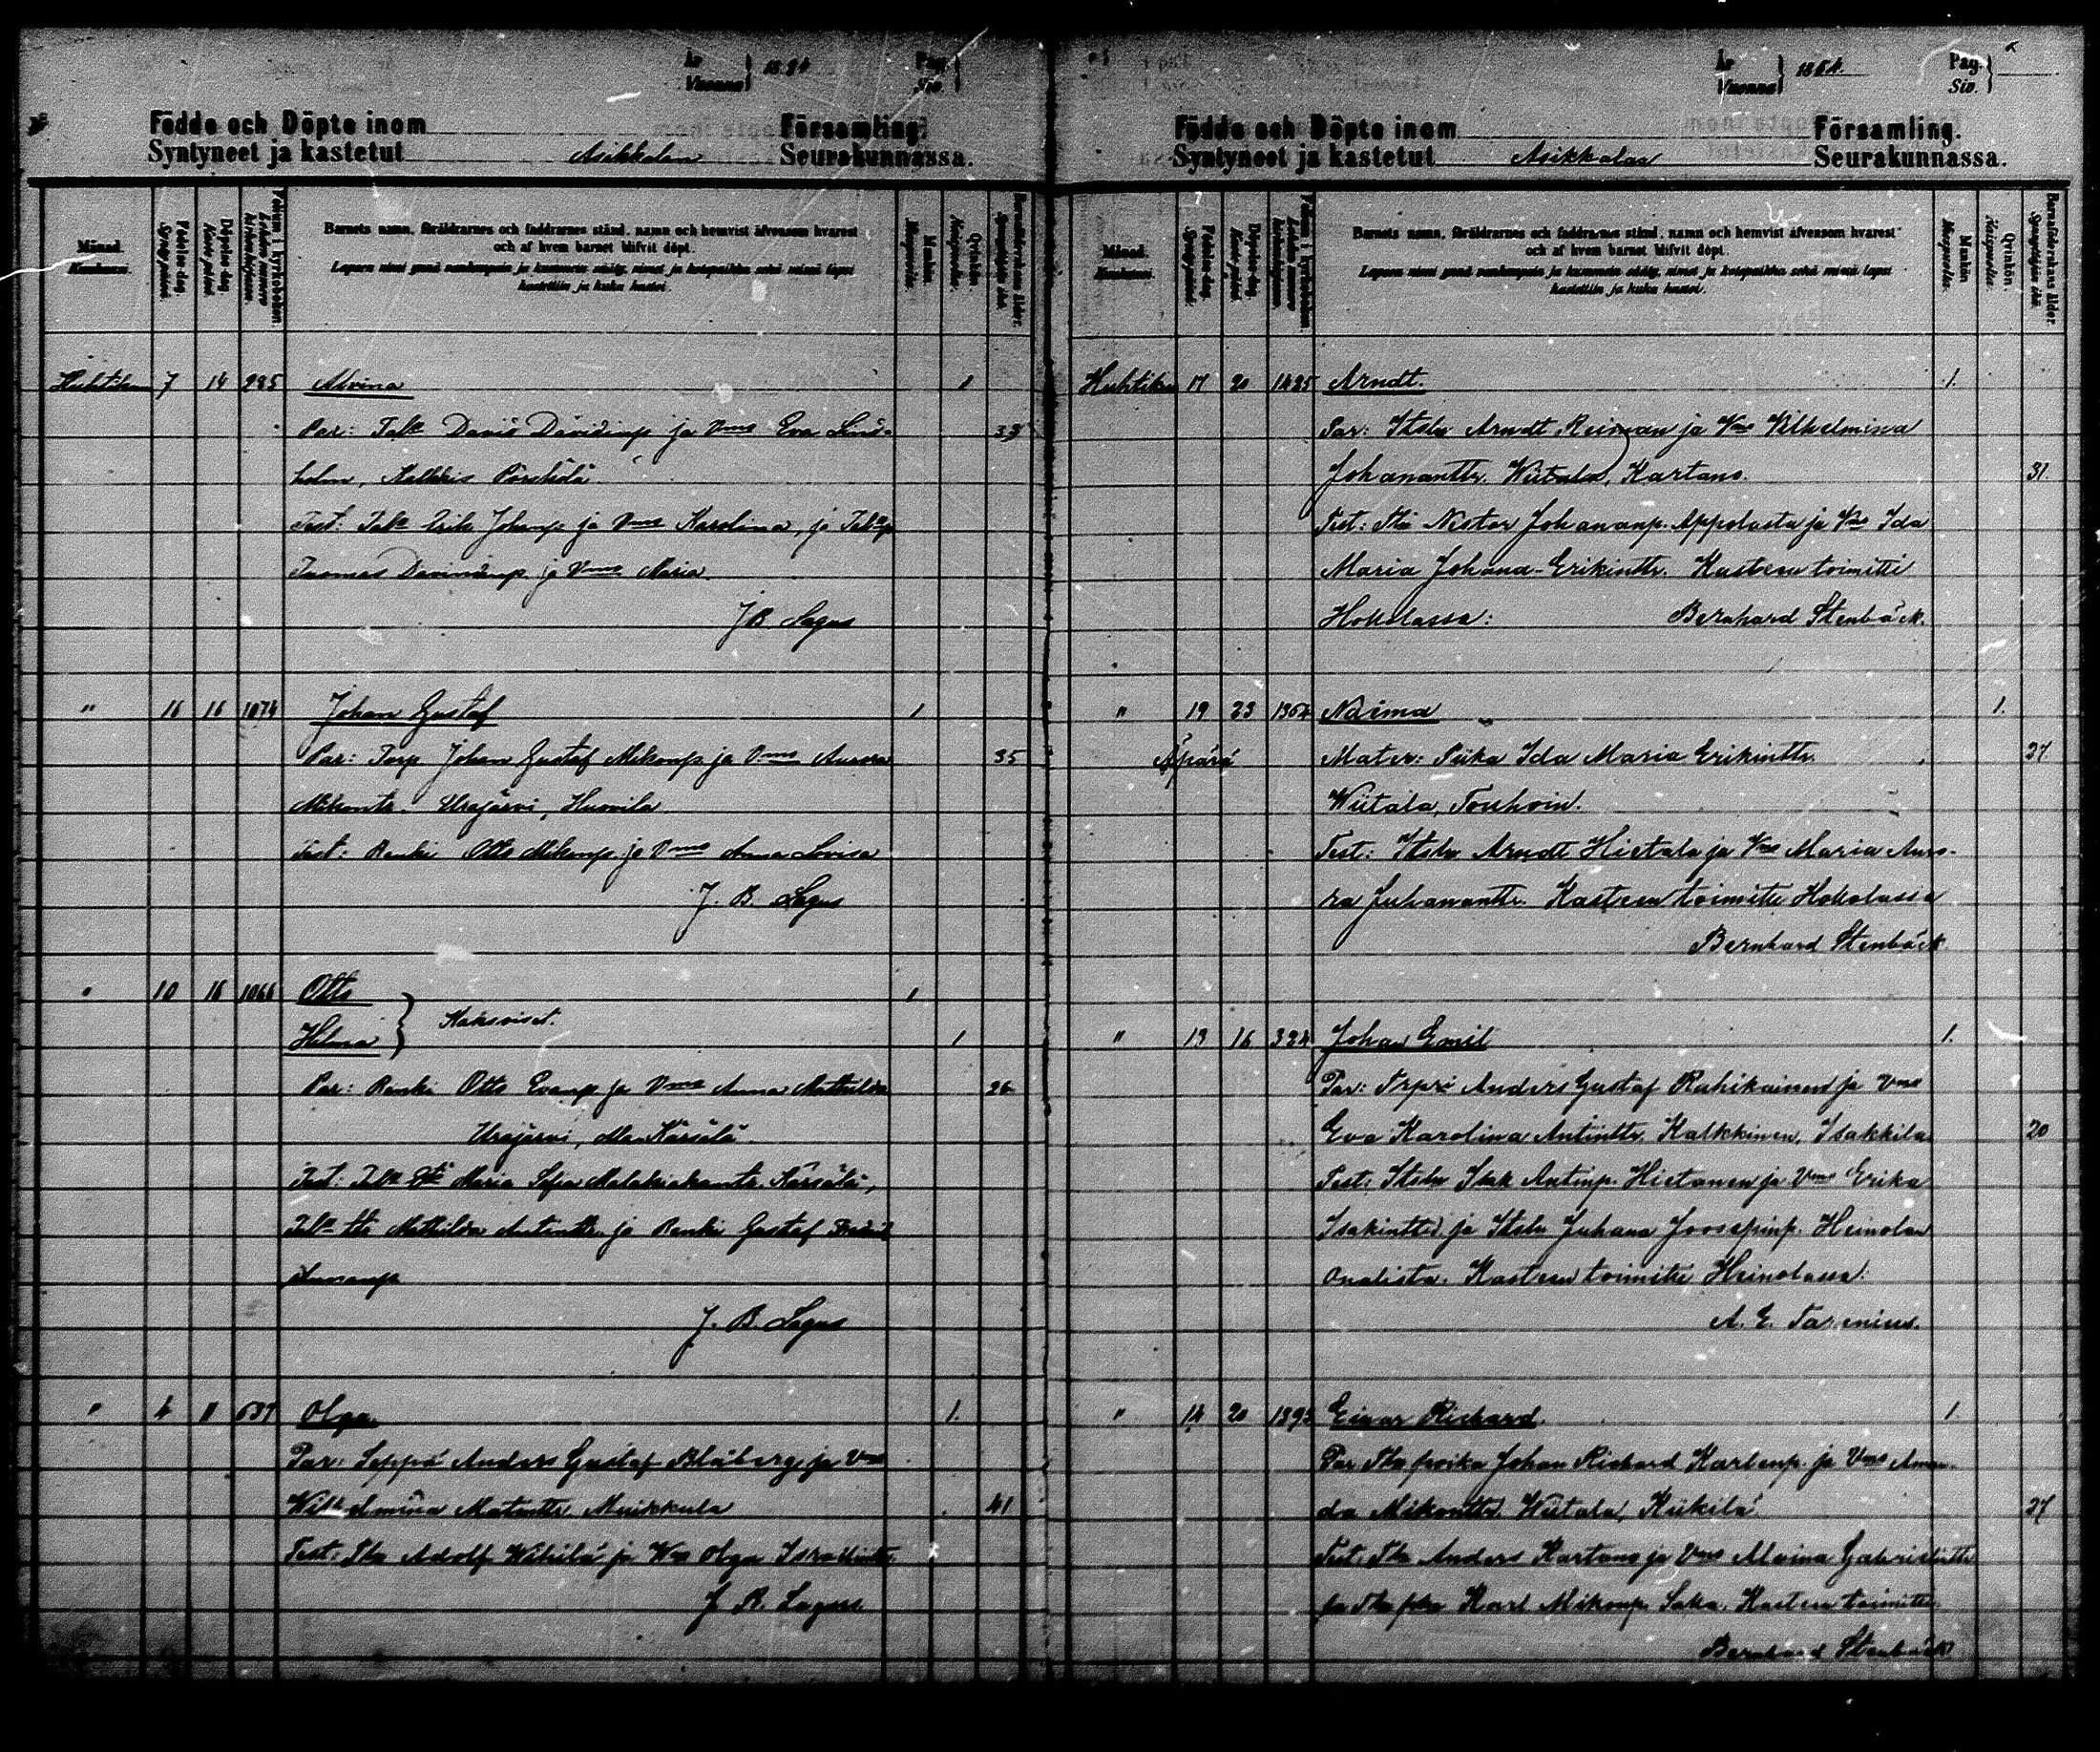 År
Vuonna } 1884
Pag.
Siv. }
Födde och Döpte inom Församling.
Syntyneet ja kastetut Asikkalan Seurakunnassa.
Månad.
Kuukausi.
Födelse-dag.
Syntymäpäivä.
Döpelse-dag.
Kaste-päivä.
Folium i kyrkoboken.
Lehden numero kirkonkirjassa.
Barnets namn, föräldrarnes och faddrarnes stånd, namn och hemvist äfvensom hvarest
och af hvem barnet blifvit döpt.
Lapsen nimi ynnä vanhempain ja kummein sääty, nimet ja kotopaikka sekä missä lapsi
kastettiin ja kuka kastoi.
Mankön.
Miespuolia.
Qvinkön.
Naispuolia.
Barnaföderskans ålder.
Synnyttäjän ikä.
Huhtiku 7 14 285 Alvina 1
Par: Talls David Davidinp ja Vmo Eva Lind- 33
holm, Kalkkis Pörskölä
Test: Talls Erik Johanp ja Vmo Karolina, ja
Tuomas Davidinp. ja Vmo Maria.
J B. Lagus
" 16 16 1074 Johan Gustaf 1
Par: Torp Johan Gustaf Mikonp ja Vmo Aurora 35
Mikontr. Urajärvi, Huovila
Test: Renki Otto Mikonp ja Vmo Anna Lovisa
J. B. Lagus
" 10 16 1066 Otto 1
Hilma } Kaksoiset. 1
Par: Renki Otto Evanp ja Vmo Anna Mathilda 26
Urajärvi, Kärsälä
Test: Maria Sofia Kärsälä,
Mathilda Antintr. ja Renki Gustaf
J. B. Lagus
" 4 11 637 Olga 1.
Par: Seppä Anders Gustaf Blåberg ja Vmo
Wilhelmina Matintr. Muikkula 41
Test: Adolf Wihilä ja Vmo Olga
J. B. Lagus.
År
Vuonna } 1884.
Pag.
Siv. }
Födde och Döpte inom Församling.
Syntyneet ja kastetut Asikkalan Seurakunnassa.
Månad.
Kuukausi.
Födelse-dag.
Syntymäpäivä.
Döpelse-dag.
Kaste-päivä.
Folium i kyrkoboken.
Lehden numero kirkonkirjassa.
Barnets namn, föräldrarnes och faddrarnes stånd, namn och hemvist äfvensom hvarest
och af hvem barnet blifvit döpt.
Lapsen nimi ynnä vanhempain ja kummein sääty, nimet ja kotopaikka sekä missä lapsi
kastettiin ja kuka kastoi.
Mankön
Miespuolia.
Qvinkön.
Naispuolia.
Barnaföderskans ålder.
Synnyttäjän ikä.
Huhtiku 17 20 1425 Arndt. 1.
Par: Itsln Arndt Reiman ja Vmo Vilhelmina
Johananttr. Wiitala, Kartano. 31.
Test: Nestor Johananp. Appolasta ja Vmo Ida
Maria Johana-Erikinttr. Kasteen toimitti
Hokolassa: Bernhard Stenbäck.
" 19 23 1364 Naima 1.
Äpärä Mater: Piika Ida Maria Erikinttr. 27.
Wiitala, Touhoin.
Test: Itsln Arndt Hietala ja Vmo Maria Auro-
ra Juhananttr. Kasteen toimitti Hokolassa
Bernhard Stenbäck
" 13 16 324 Johan Emil 1.
Par: Trpri Anders Gustaf Rahikainen ja Vmo
Eva Karolina Antinttr. Kalkkinen, Isakkila 20
Test: Itsln Isak Antinp. Hietanen ja Vmo Erika
Isakinttr. ja Itsln Juhana Joosepinp. Heinolan
Onalista. Kasteen toimitti Heinolassa.
A. E. Tarenius.
" 14 20 1393 Einar Richard. 1
Par: poika Johan Richard Karlenp. ja Vmo Aman-
da Mikonttr. Wiitala, Kiikilä 27
Test: Anders Kartano ja Vmo Alvina Gabrielintr
Karl Mikonp. Saka. Kasteen toimitti
Bernhard Stenbäck